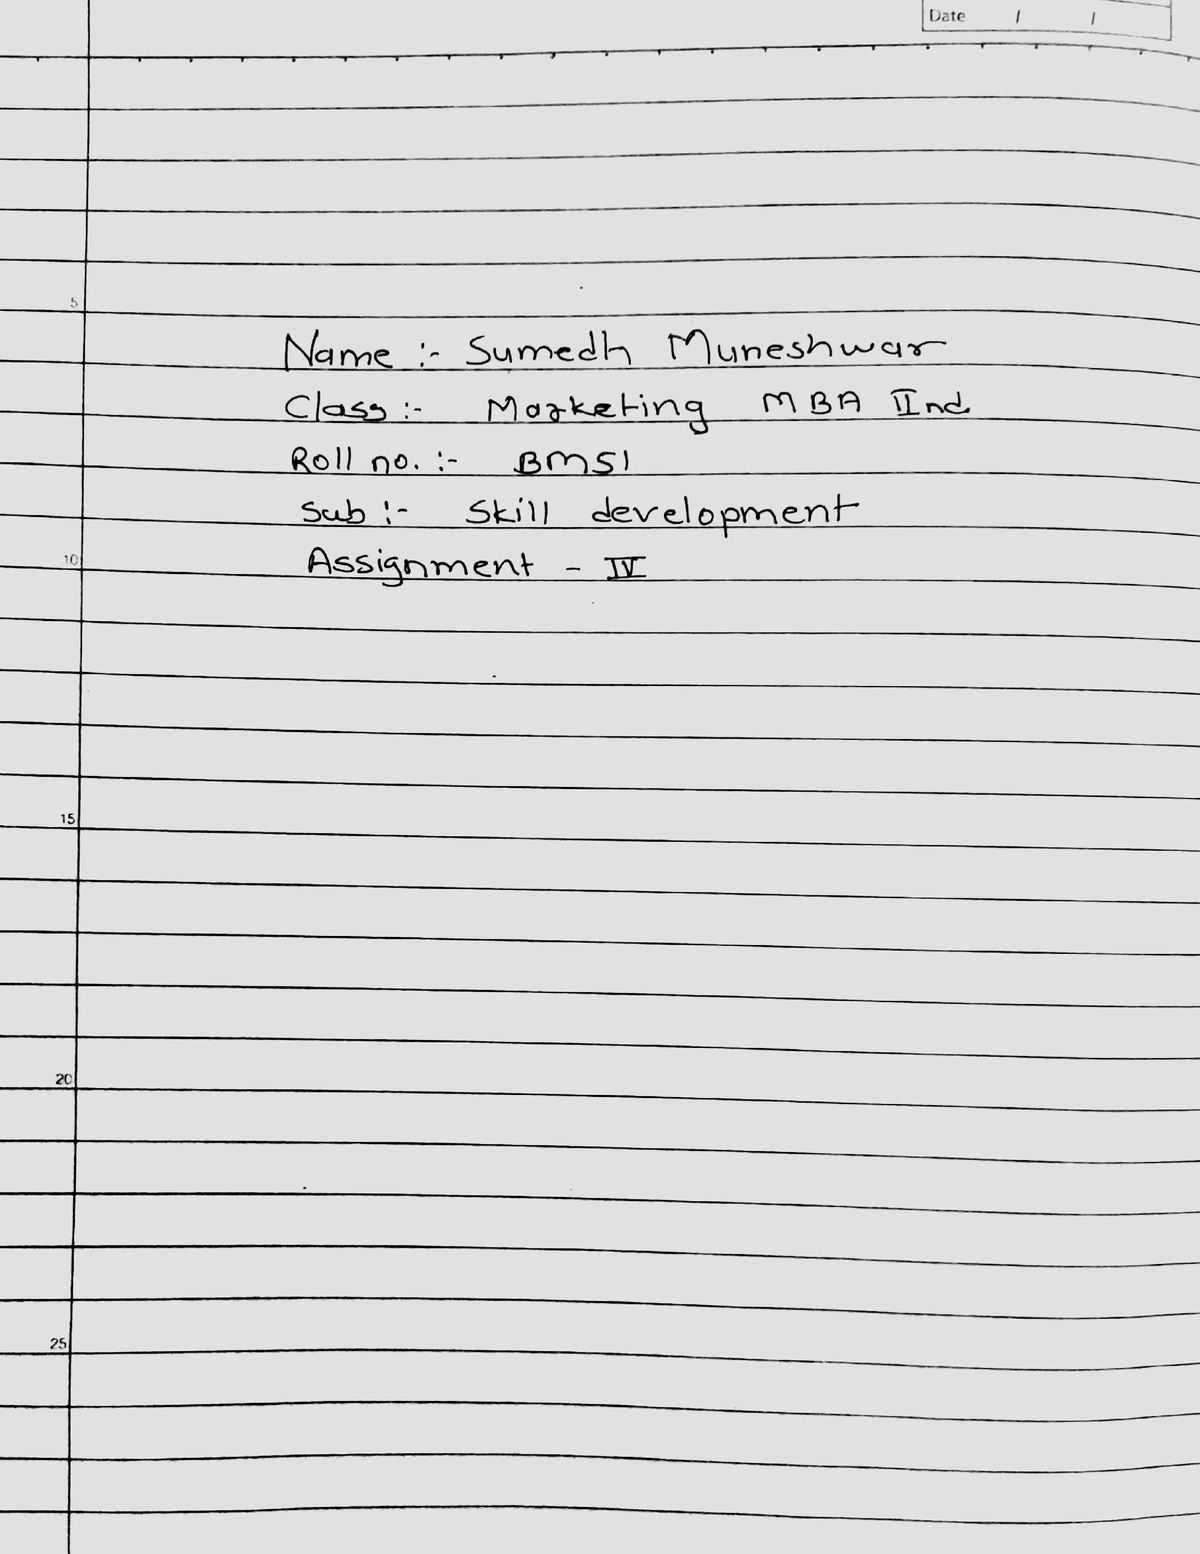 Date / /
5
Name :- Sumedh Muneshwar
Class :- Marketing MBA IInd
Roll no. :- BM51
Sub :- Skill development
10
Assignment - IV
15
20
25